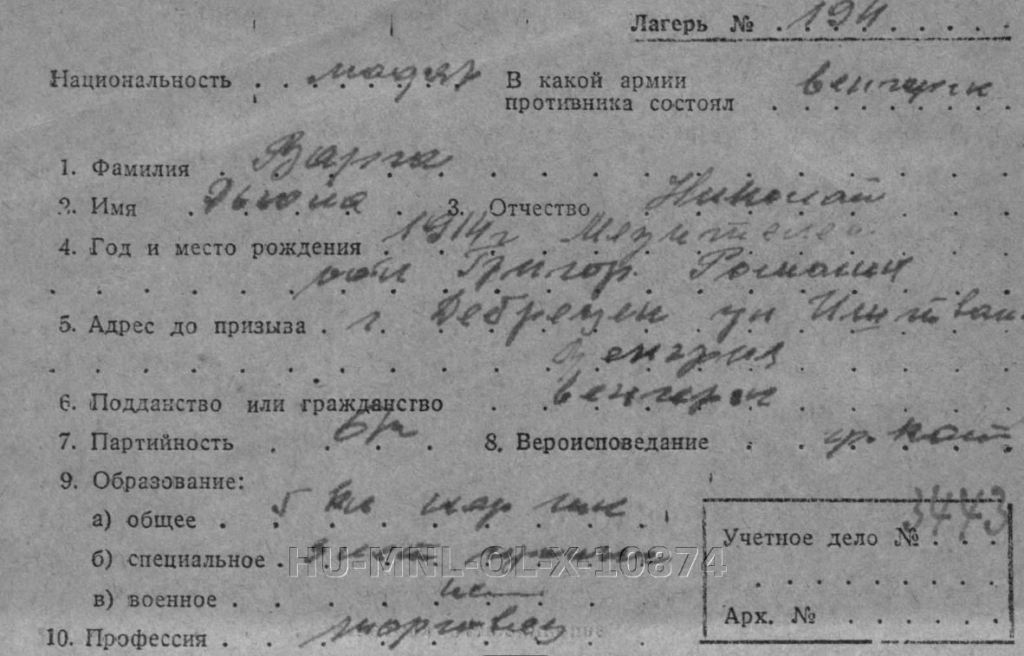 Лагерь № 194
Национальность мадяр В какой армии
противника состоял венгерск
1. Фамилия Варга
2. Имя Дьюла 3. Отчество Николай
4. Год и место рождения 1914 г
обл Григор Романия
5. Адрес до призыва г. Дебрецен ул Иштван
Венгрия
6. Подданство или гражданство венгерск
7. Партийность б/п 8. Вероисповедание гр. кат
9. Образование:
а) общее 5 кл нар шк
б) специальное
в) военное нет
10. Профессия торговец
Учетное дело № 3443
Арх. №
HU-MNL-OL-X-10874